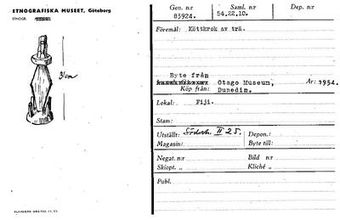 ETNOGRAFISKA MUSEET, Göteborg
Gen. nr
03924.
Saml. nr
54.22.10.
Dep. nr
Föremål: Köttkrok av trä.
Byte från
Köp från: Otago Museum, Dunedin.
År: 1954.
Lokal: Fiji.
Stam:
Utställt: Söderh II 25.
Depon.:
Magasin:
Byte till:
Negat. nr
Bild nr
Skiopt. nr
Kliché nr
Publ.